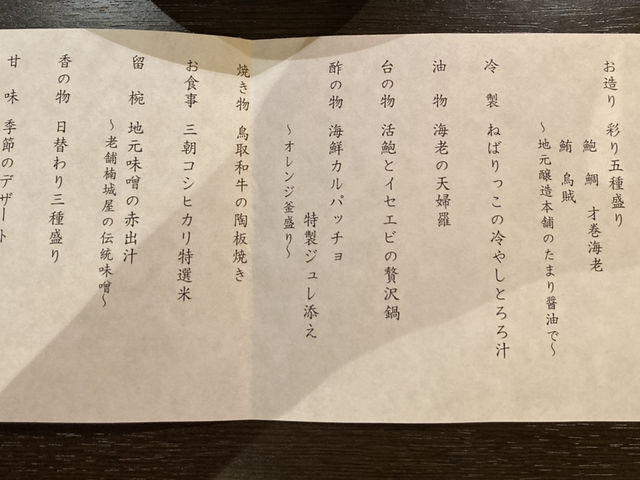 お造り　彩り五種盛り
鮑　鯛　才巻海老
鮪　烏賊
〜地元醸造本舗のたまり醤油で〜
冷　製　ねばりっこの冷やしとろろ汁
油　物　海老の天婦羅
台の物　活鮑とイセエビの贅沢鍋
酢の物　海鮮カルパッチョ
特製ジュレ添え
〜オレンジ釜盛り〜
焼き物　鳥取和牛の陶板焼き
お食事　三朝コシヒカリ特選米
留　椀　地元味噌の赤出汁
〜老舗楠城屋の伝統味噌〜
香の物　日替わり三種盛り
甘　味　季節のデザート